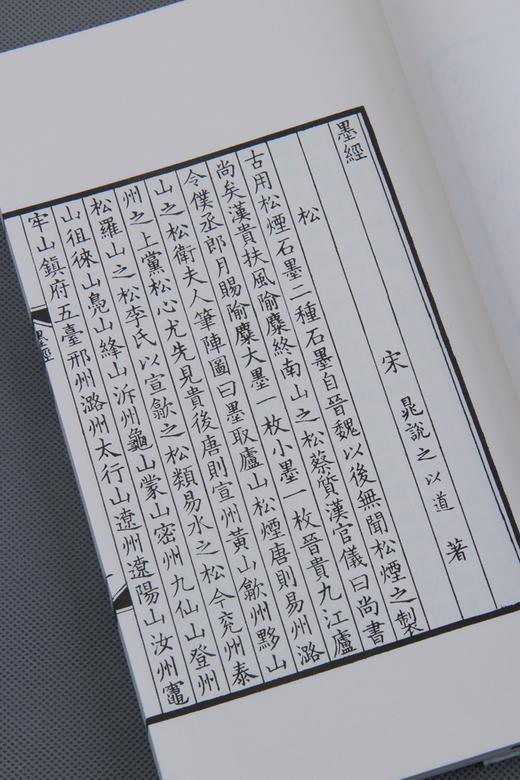 墨經
宋 晁說之以道 著
松
古用松煙石墨二種石墨自晉魏以後無聞松煙之製
尚矣漢貴扶風隃麋終南山之松蔡質漢官儀曰尚書
令僕丞郎月賜隃麋大墨一枚小墨一枚晉貴九江廬
山之松衛夫人筆陣圖曰墨取廬山松煙唐則易州潞
州之上黨松心尤先見貴後唐則宣州黃山歙州黟山
松羅山之松李氏以宣歙之松類易水之松今兗州泰
山徂徠山鳧山嶧山沂州龜山蒙山密州九仙山登州
牢山鎮府五臺邢州潞州太行山遼州遼陽山汝州竈
墨經